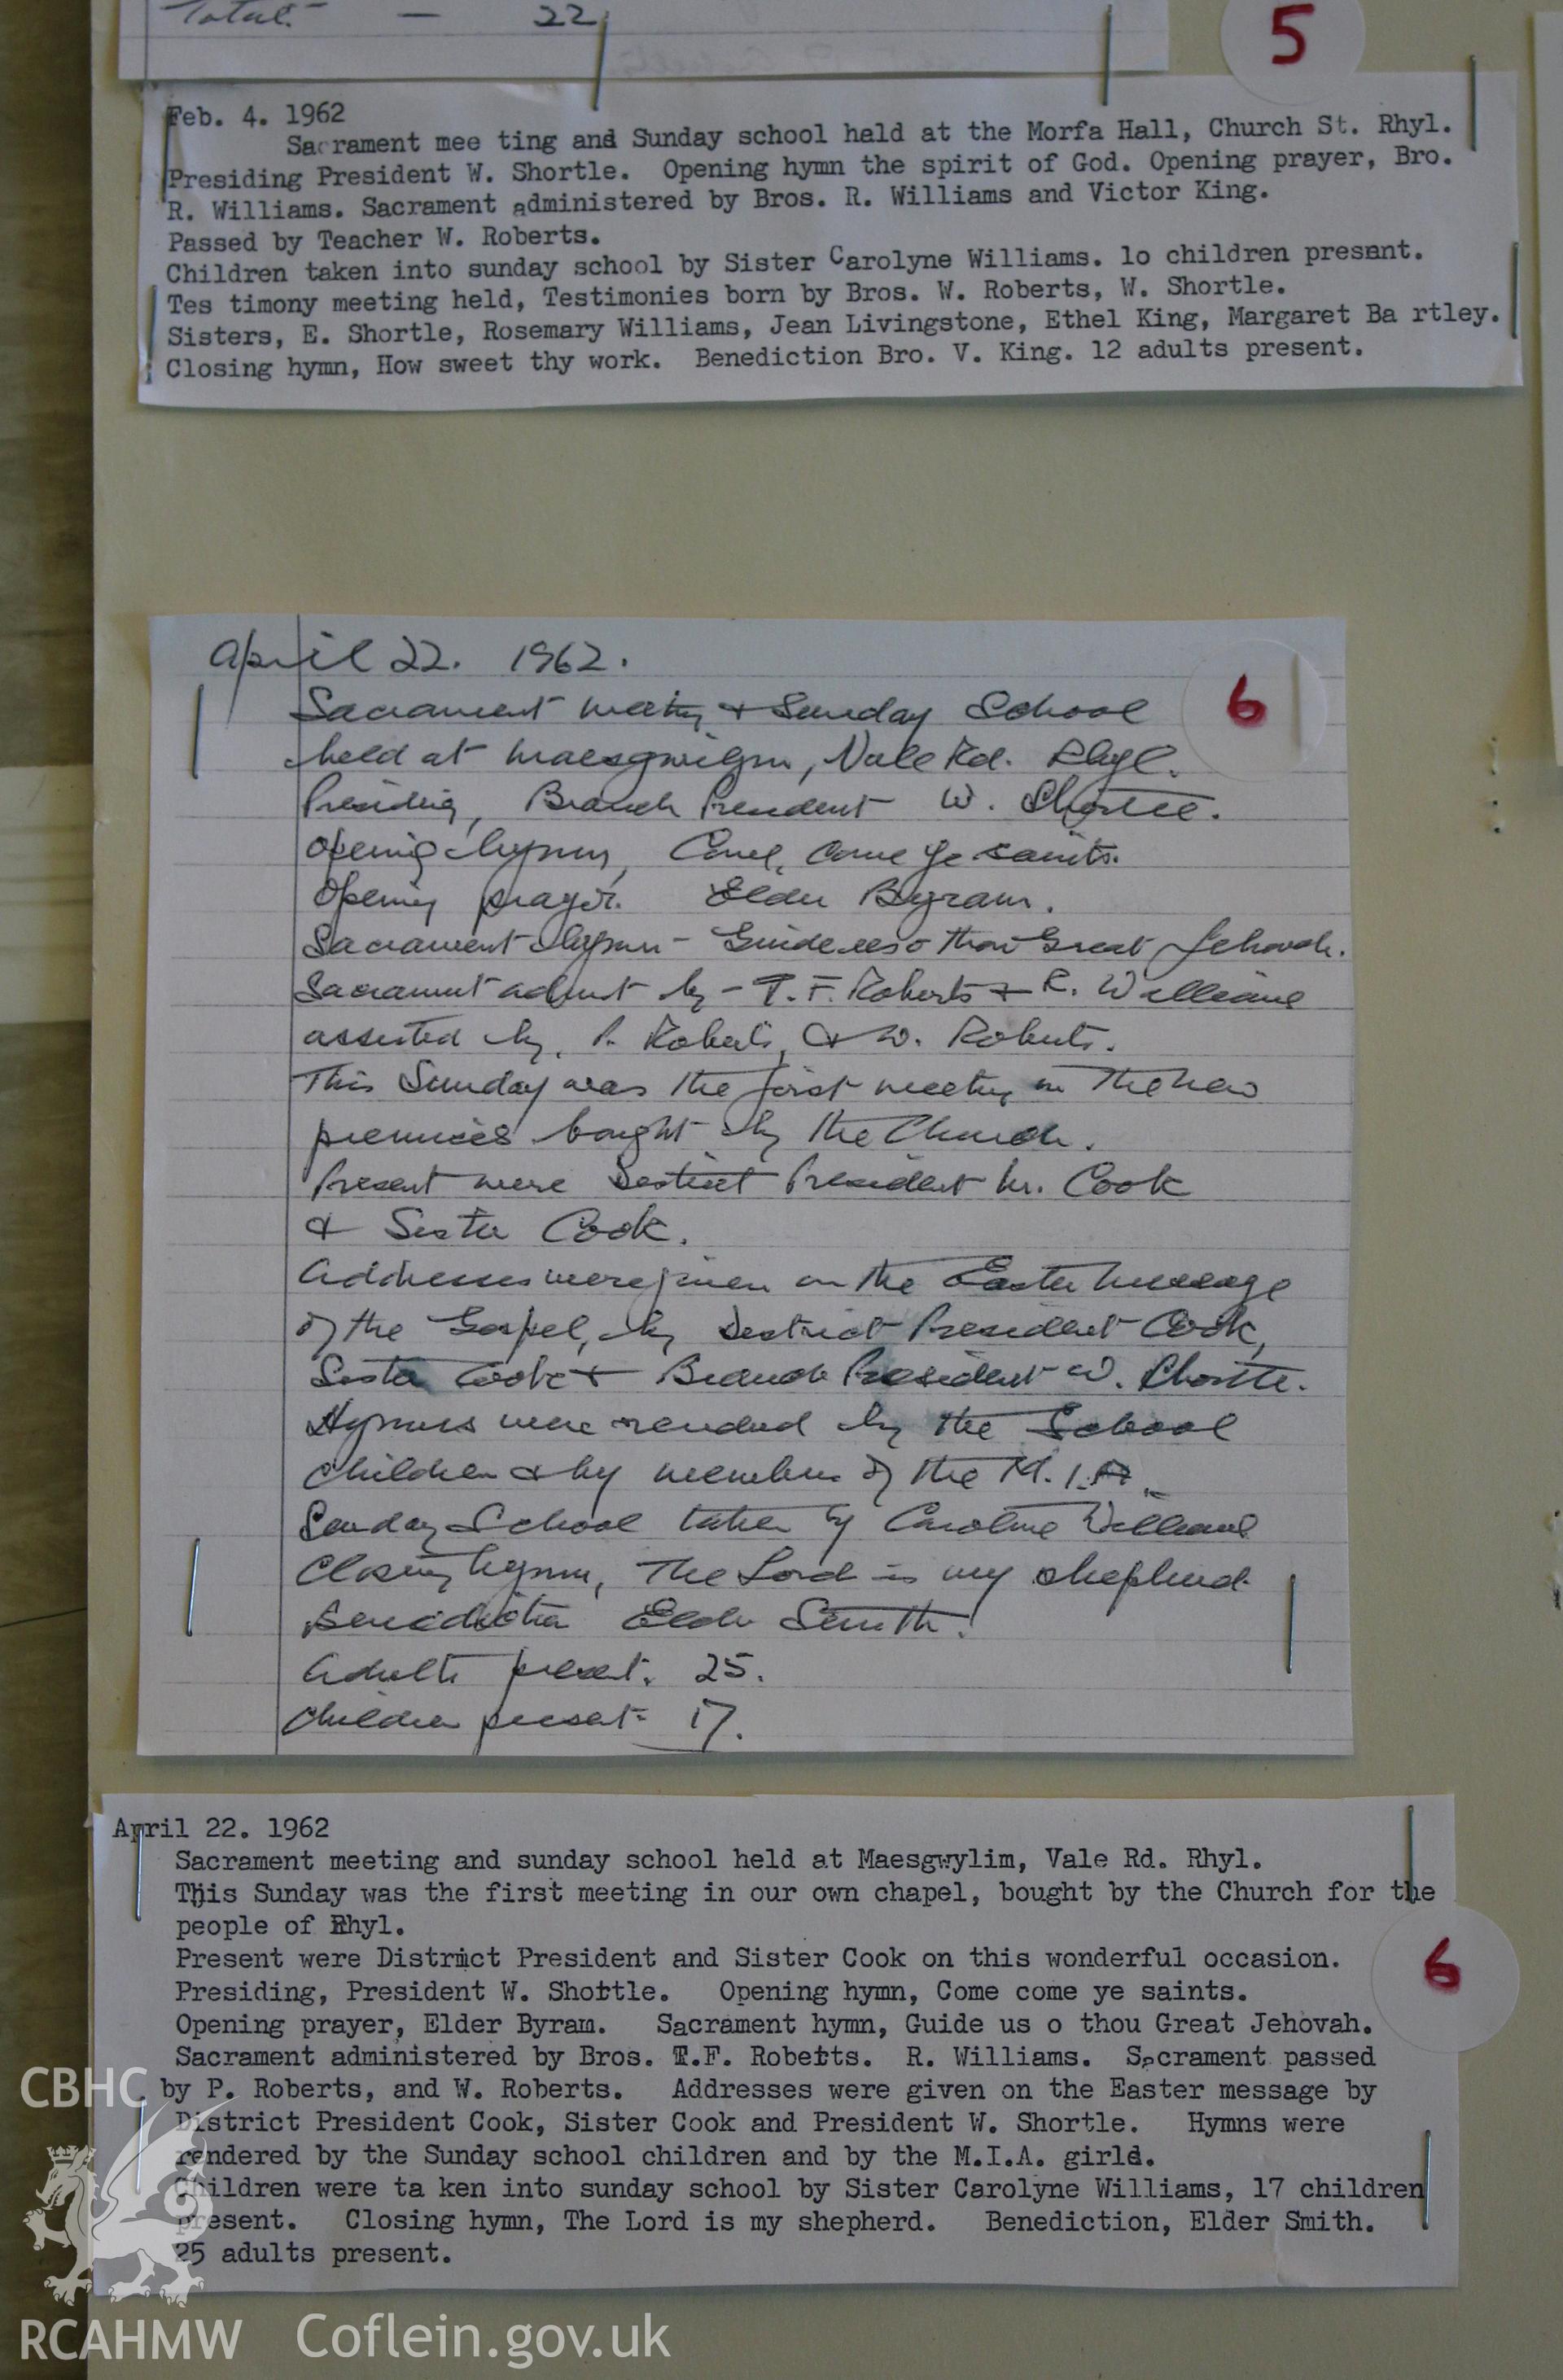 Total. — 22
5
Feb. 4. 1962
Sacrament mee ting and Sunday school held at the Morfa Hall, Church St. Rhyl.
Presiding President W. Shortle. Opening hymn the spirit of God. Opening prayer, Bro.
R. Williams. Sacrament administered by Bros. R. Williams and Victor King.
Passed by Teacher W. Roberts.
Children taken into sunday school by Sister Carolyne Williams. lo children present.
Tes timony meeting held, Testimonies born by Bros. W. Roberts, W. Shortle.
Sisters, E. Shortle, Rosemary Williams, Jean Livingstone, Ethel King, Margaret Ba rtley.
Closing hymn, How sweet thy work. Benediction Bro. V. King. 12 adults present.
April 22. 1962.
6
Sacrament meeting & Sunday School
held at Maesgwilym, Vale Rd. Rhyl.
Presiding, Branch President W. Shortle.
Opening hymn, Come, come ye saints.
Opening prayer. Elder Byram.
Sacrament hymn - Guide us o thou Great Jehovah.
Sacrament admint by - T. F. Roberts & R. Williams
assisted by, P. Roberts, & W. Roberts.
This Sunday was the first meeting in the new
premises bought by the Church.
Present were District President Cook
& Sister Cook.
Addresses were given on the Easter message
of the Gospel, by District President Cook,
Sister Cook & Branch President W. Shortle.
Hymns were rendered by the School
children & by members of the M.I.A.
Sunday School taken by Caroline Williams
Closing hymn, The Lord is my shepherd.
Benediction Elder Smith.
Adults present. 25.
Children present - 17.
April 22. 1962
Sacrament meeting and sunday school held at Maesgwylim, Vale Rd. Rhyl.
This Sunday was the first meeting in our own chapel, bought by the Church for the
people of Rhyl.
Present were District President and Sister Cook on this wonderful occasion.
Presiding, President W. Shottle. Opening hymn, Come come ye saints.
Opening prayer, Elder Byram. Sacrament hymn, Guide us o thou Great Jehovah.
Sacrament administered by Bros. T.F. Robetts. R. Williams. Sacrament passed
by P. Roberts, and W. Roberts. Addresses were given on the Easter message by
District President Cook, Sister Cook and President W. Shortle. Hymns were
rendered by the Sunday school children and by the M.I.A. girls.
Children were ta ken into sunday school by Sister Carolyne Williams, 17 children
present. Closing hymn, The Lord is my shepherd. Benediction, Elder Smith.
25 adults present.
6
CBHC
RCAHMW Coflein.gov.uk